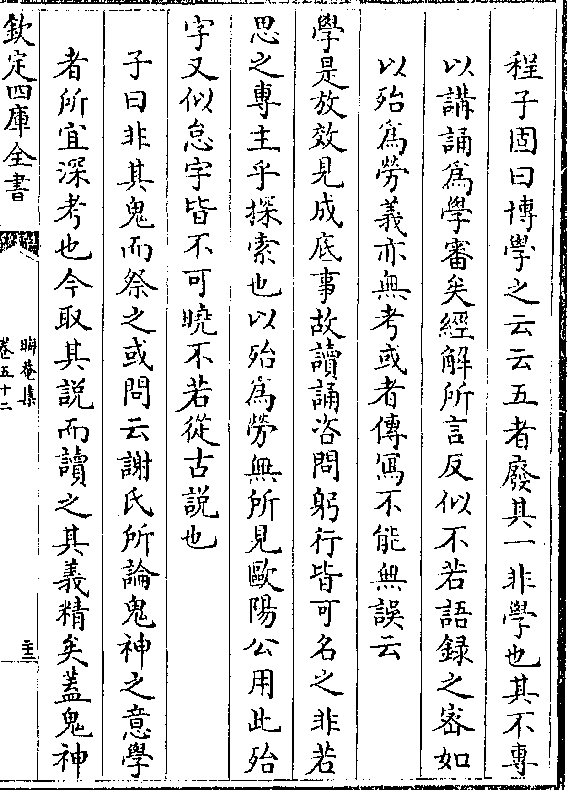 程子固曰博學之云云五者廢其一非學也其不專
以講誦為學審矣經解所言反似不若語錄之宻如
以殆為勞義亦無考或者傳寫不能無誤云
學是放效見成底事故讀誦咨問躬行皆可名之非若
思之專主乎探索也以殆為勞無所見歐陽公用此殆
字又似怠字皆不可曉不若從古説也
子曰非其鬼而祭之或問云謝氏所論鬼神之意學
者所宜深考也今取其説而讀之其義精矣蓋鬼神
欽定四庫全書
晦菴集
卷五十二